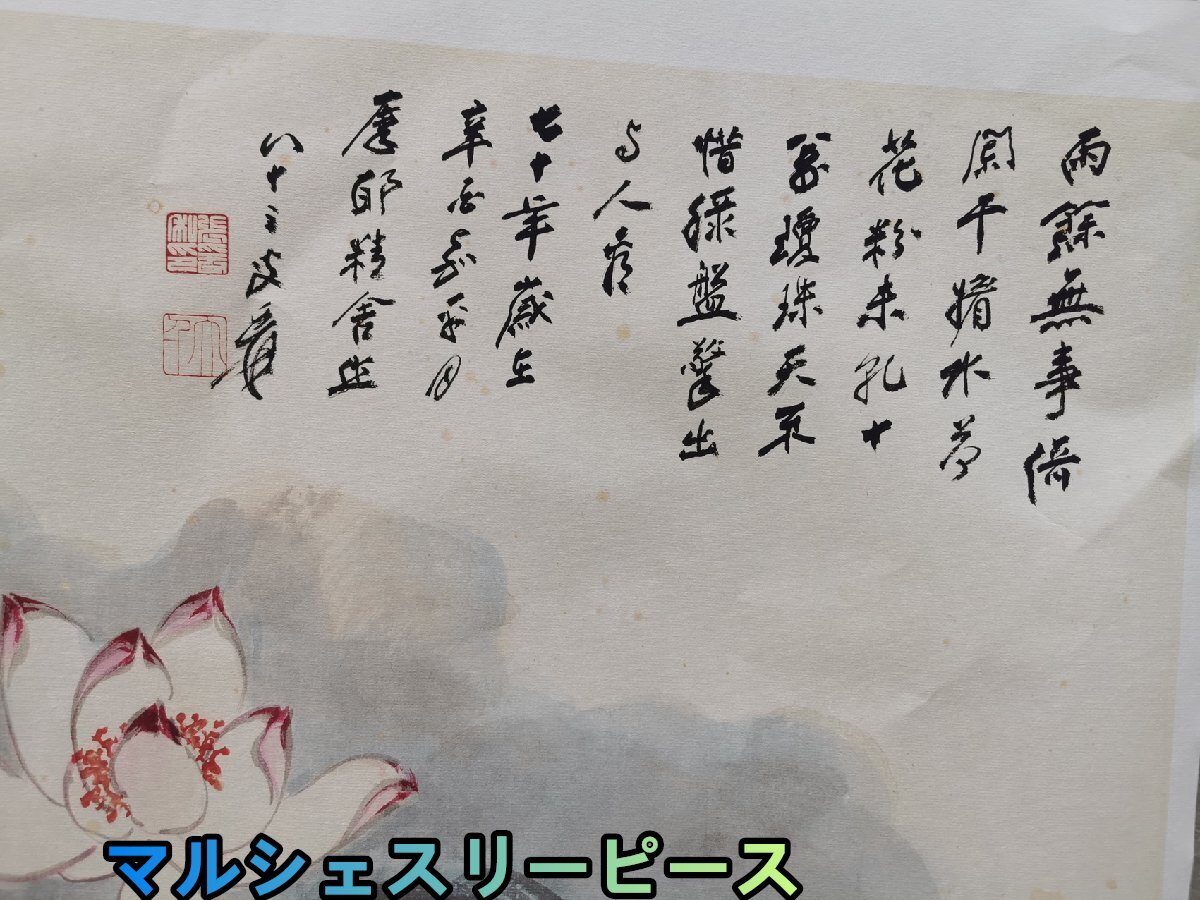 雨餘無事倚
闌干媚水荷
花粉未乾十
萬瓊珠天不
惜綠盤擎出
与人看
七十年歲在
辛酉嘉平月
摩耶精舍
八十三叟爰
大千
マルシェスリーピース